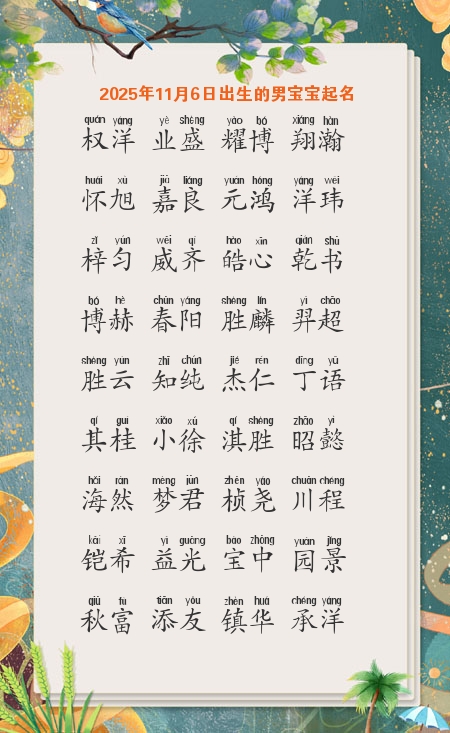 2025年11月6日出生的男宝宝起名
quán yáng yè shèng yào bó xiáng hàn
权洋 业盛 耀博 翔瀚
huái xù jiā liáng yuán hóng yáng wěi
怀旭 嘉良 元鸿 洋玮
zǐ yún wēi qí hào xīn qián shū
梓匀 威齐 皓心 乾书
bó hè chūn yáng shèng lín yì chāo
博赫 春阳 胜麟 羿超
shèng yún zhī chún jié rén dīng yǔ
胜云 知纯 杰仁 丁语
qí guì xiǎo xú qí shèng zhāo yì
其桂 小徐 淇胜 昭懿
hǎi rán mèng jūn zhēn yáo chuān chéng
海然 梦君 桢尧 川程
kǎi xī yì guāng bǎo zhōng yuán jǐng
铠希 益光 宝中 园景
qiū fù tiān yǒu zhèn huá chéng yáng
秋富 添友 镇华 承洋